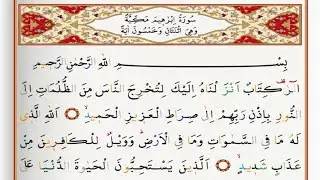 سُورَةُ اِبْرٰه۪يمَ مَكِّيَّةٌ
وَهِيَ اثْنَتَانِ وَخَمْسُونَ اٰيَةً
بِسْمِ اللهِ الرَّحْمٰنِ الرَّحِيمِ
الٓرٰ كِتَابٌ اَنْزَلْنَاهُ اِلَيْكَ لِتُخْرِجَ النَّاسَ مِنَ الظُّلُمَاتِ اِلَى
النُّورِ بِاِذْنِ رَبِّهِمْ اِلٰى صِرَاطِ الْعَزِيزِ الْحَمِيدِ ۙ اَللهِ الَّذ۪ي
لَهُ مَا فِي السَّمٰوَاتِ وَمَا فِي الْاَرْضِ ۜ وَوَيْلٌ لِلْكَافِرِينَ مِنْ
عَذَابٍ شَدِيدٍ ۙ اَلَّذِينَ يَسْتَحِبُّونَ الْحَيٰوةَ الدُّنْيَا عَلَى